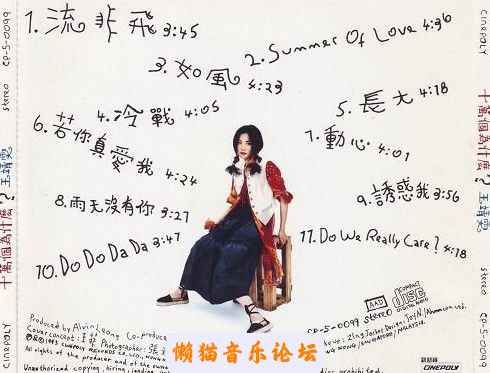 1. 流非飛 3:45
2. Summer Of Love 4:36
3. 如風 4:23
4. 冷戰 4:05
5. 長大 4:18
6. 若你真愛我 4:24
7. 動心 4:01
8. 雨天沒有你 3:27
9. 誘惑我 3:56
10. Do Do Da Da 3:47
11. Do We Really Care? 4:18
CINEPOLY
stereo CP-5-0099
十萬個為什麼? 王靖雯
CINEPOLY
stereo
CP-5-0099
十萬個為什麼? 王靖雯
AAD
COMPACT
disc
DIGITAL AUDIO
CP-5-0099 stereo
Produced by Alvin Leong Co-produce
Cover concept: 王菲 Photographer: 張
All rights of the producer and of the
Unauthorized copying, hiring, lending,
prohibited.
CINEPOLY
懒猫音乐论坛